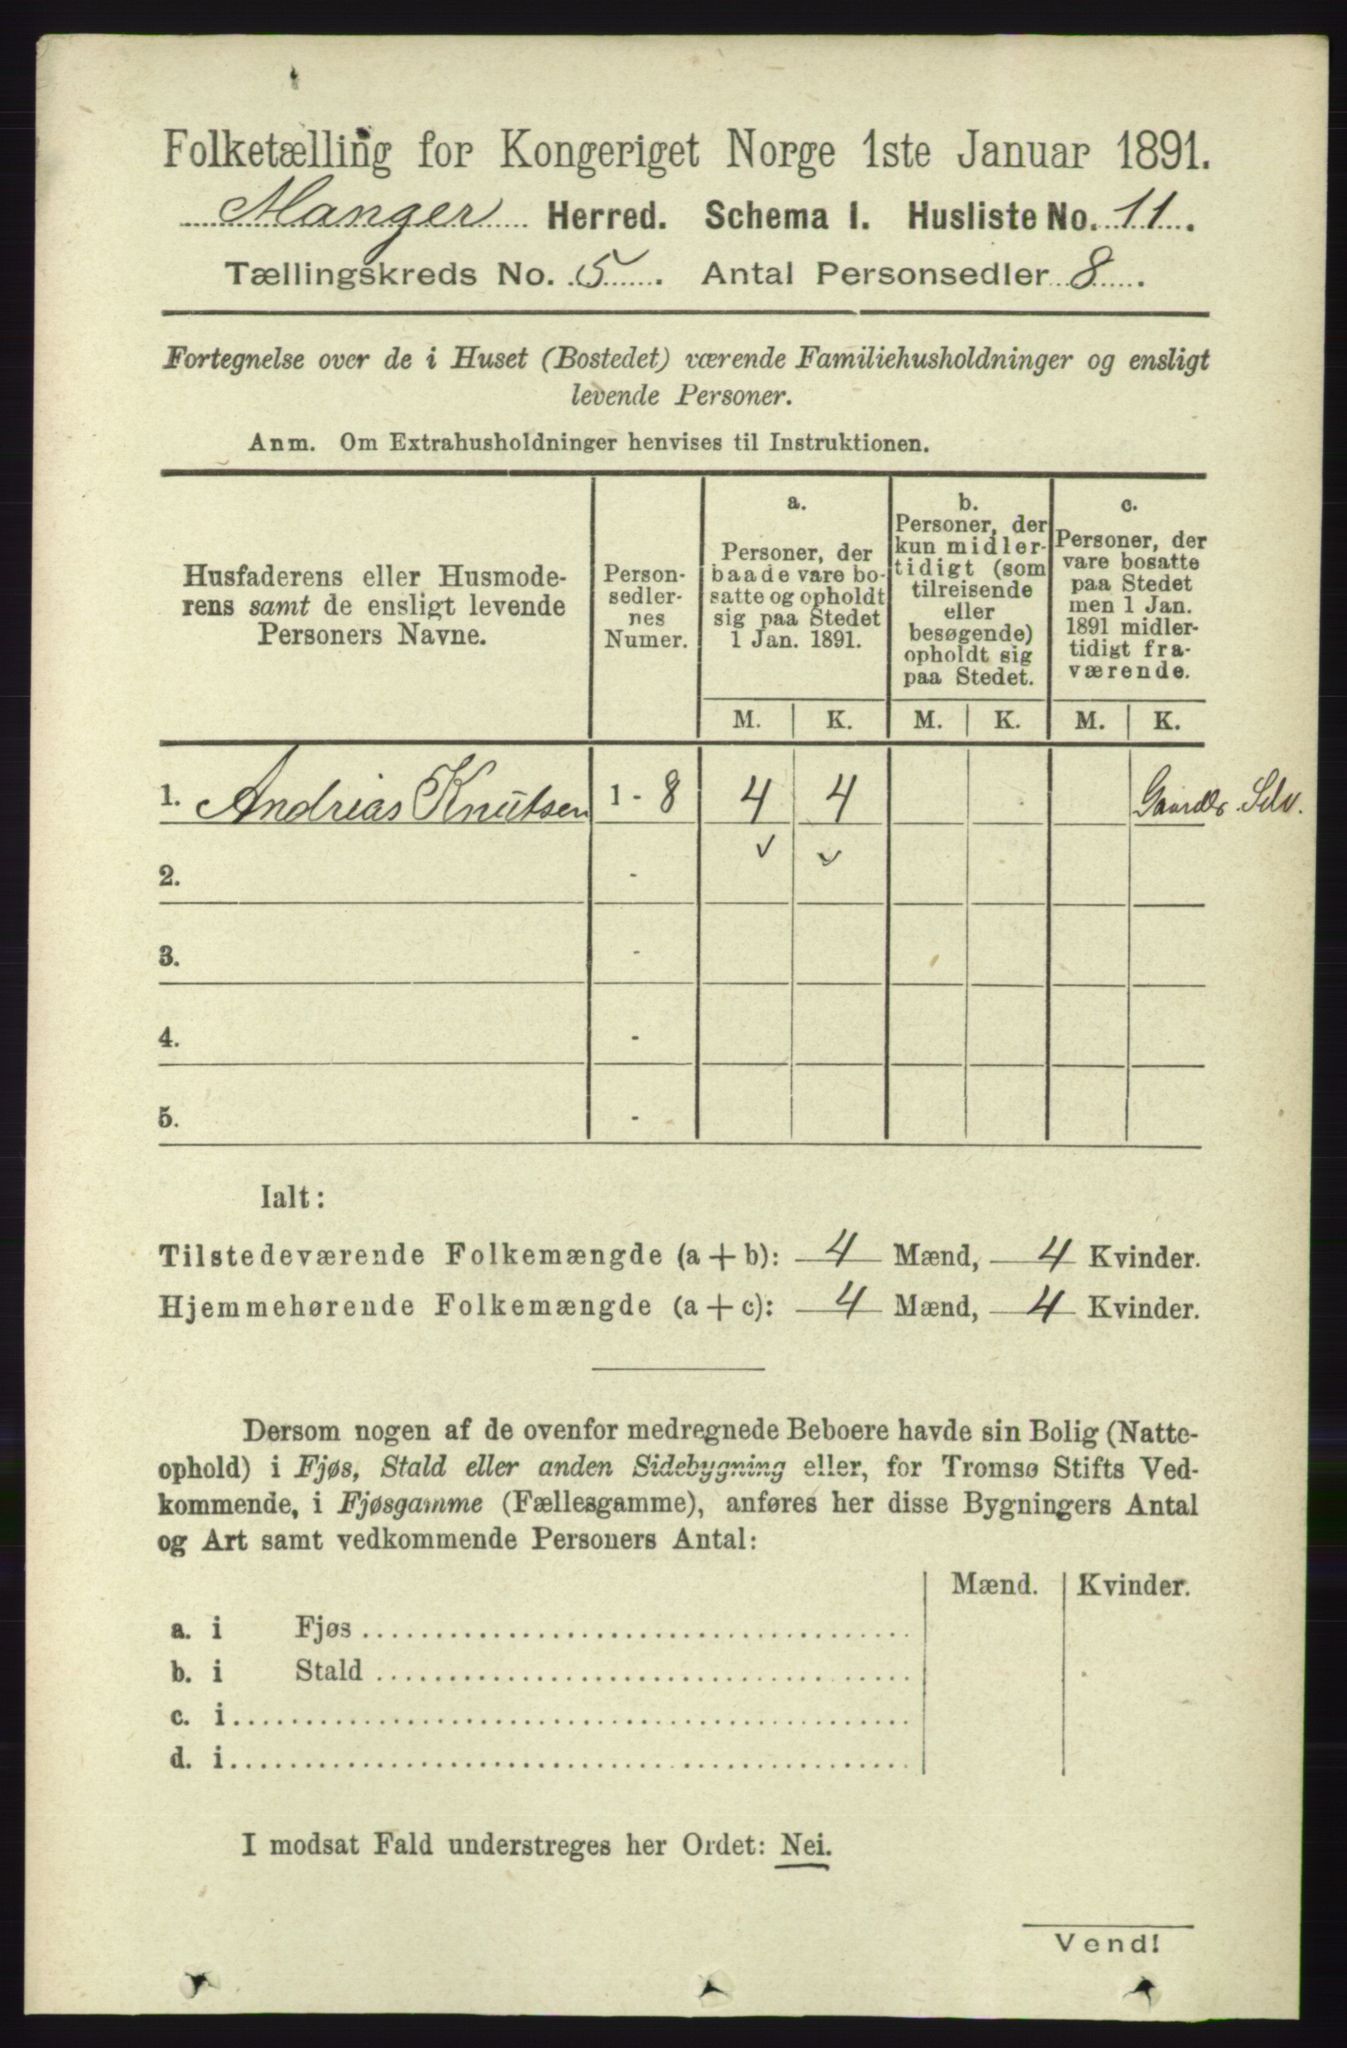 Folketælling for Kongeriget Norge 1ste Januar 1891.
Manger Herred. Schema I. Husliste No. 11.
Tællingskreds No. 5. Antal Personsedler 8.
Fortegnelse over de i Huset (Bostedet) værende Familiehusholdninger og ensligt
levende Personer.
Anm. Om Extrahusholdninger henvises til Instruktionen.
Husfaderens eller Husmode-
rens samt de ensligt levende
Personers Navne.
Person-
sedler-
nes
Numer.
a.
Personer, der
baade vare bo-
satte og opholdt
sig paa Stedet
1 Jan. 1891.
b.
Personer, der
kun midler-
tidigt (som
tilreisende
eller
besøgende)
opholdt sig
paa Stedet.
c.
Personer, der
vare bosatte
paa Stedet
men 1 Jan.
1891 midler-
tidigt fra-
værende.
M. K. M. K. M. K.
1. Andrias Knutsen 1 - 8 4 4 Gaardbr. Selv.
2. -
3. -
4. -
5. -
Ialt:
Tilstedeværende Folkemængde (a + b): 4 Mænd, 4 Kvinder.
Hjemmehørende Folkemængde (a + c): 4 Mænd, 4 Kvinder.
Dersom nogen af de ovenfor medregnede Beboere havde sin Bolig (Natte-
ophold) i Fjøs, Stald eller anden Sidebygning eller, for Tromsø Stifts Ved-
kommende, i Fjøsgamme (Fællesgamme), anføres her disse Bygningers Antal
og Art samt vedkommende Personers Antal:
Mænd. Kvinder.
a. i Fjøs
b. i Stald
c. i
d. i
I modsat Fald understreges her Ordet: Nei.
Vend!